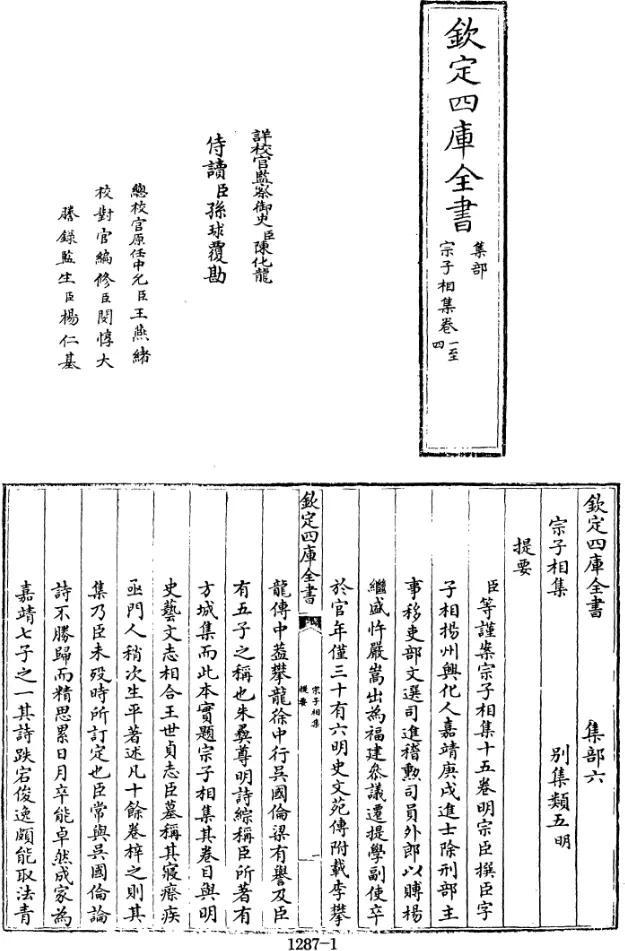 欽定四庫全書
集部
宗子相集卷一至四
詳校官監察御史臣陳化龍
侍讀臣孫球覆勘
總校官原任中允臣王燕緒
校對官編修臣閔惇大
謄錄監生臣楊仁基
欽定四庫全書 集部六
宗子相集 別集類五明
提要
臣等謹案宗子相集十五卷明宗臣撰臣字
子相揚州興化人嘉靖庚戌進士除刑部主
事移吏部文選司進稽勲司員外郎以賻楊
繼盛忤嚴嵩出為福建叅議遷提學副使卒
於官年僅三十有六明史文苑傳附載李攀
欽定四庫全書
宗子相集
提要
一
龍傳中葢攀龍徐中行吳國倫梁有譽及臣
有五子之稱也朱彝尊明詩綜稱臣所著有
方城集而此本實題宗子相集其卷目與明
史藝文志相合王世貞志臣墓稱其寢瘵疾
亟門人稍次生平著述凡十餘卷梓之則其
集乃臣未殁時所訂定也臣常與吳國倫論
詩不勝歸而精思累日月卒能卓然成家為
嘉靖七子之一其詩跌宕俊逸頗能取法青
1287-1